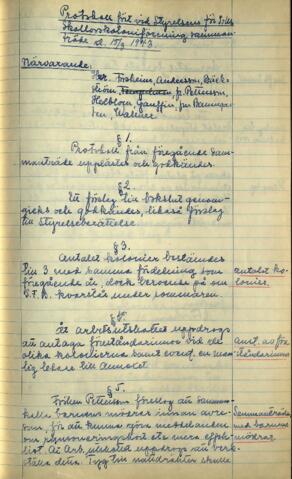 Protokoll fört vid Styrelsens för
Skollovskoloniförening samman-
träde d. 15/2 1943
Närvarande:
Hr. Froheim, Andersson, Bäck-
ström, p. Petersson,
Hellblom
§ 1.
Protokoll från föregående sam-
manträde upplästes och godkändes.
§ 2.
Ett förslag till bokslut genom-
gicks och godkändes, likaså förslag
till styrelseberättelse.
§ 3.
Antalet kolonier bestämdes
till 3 med samma fördelning som
föregående år, dock beroende på om
kvarstår under sommaren.
antalet ko-
lonier.
§ 4.
Åt arbetsutskottet uppdrogs
att antaga föreståndarinnor vid de
olika kolonierna samt event. en man-
lig ledare till Almöket
Ant. av fö-
reståndarinnor
§ 5.
Fröken Petersson föreslog att samman-
kalla barnens mödrar innan avre-
san, för att kunna göra meddelanden
om ransoneringskort etc mera effek-
tivt. Åt Arb. utskottet uppdrogs att verk-
ställa detta. skulle
Sammanträde
med barnens
mödrar